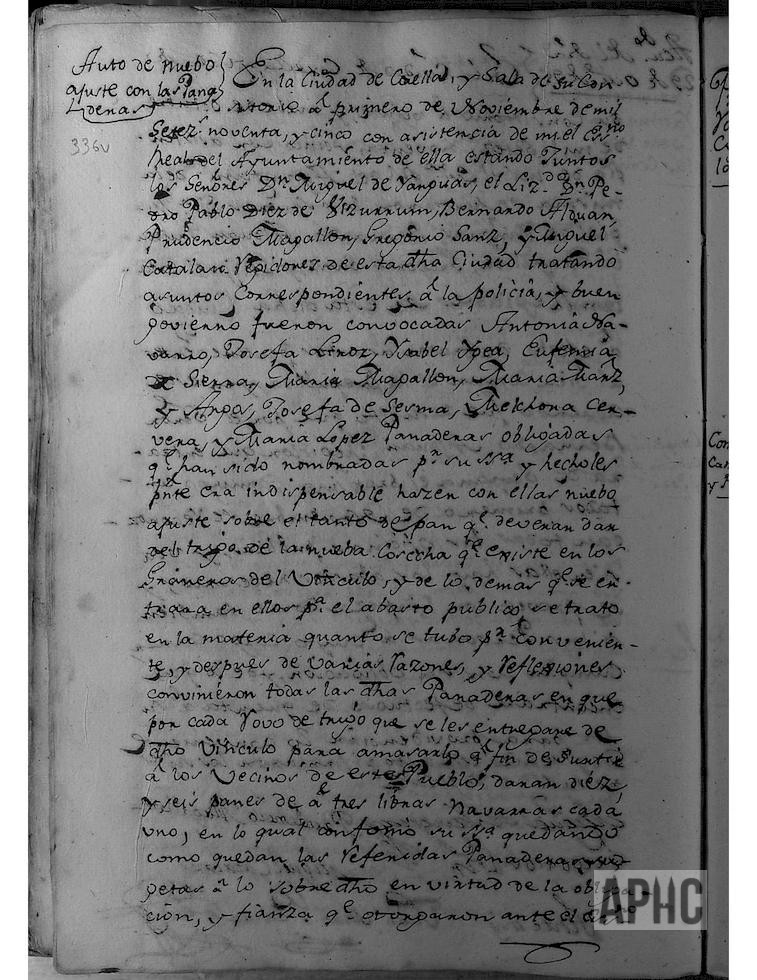 Auto de nuebo
ajuste con las Pana
deras
336v
En la Ciudad de Corella, y Sala de su Con
sistorio â primero de Noviembre de mil
Setez.s noventa, y cinco con asistencia de mi el Es.no
Real del Ayuntamiento de ella estando Juntos
los Señores Dn. Miguel de Vanguas, el Liz.do Dn. Pe-
dro Pablo Diez de Vzurrum, Bernardo Alduan,
Prudencio Magallon, Gregorio Sanz, y Miguel
Catalan Rexidores de esta dha Ciudad tratando
asuntos Correspondientes â la policia, y buen
govierno fueron convocadas Antonia Na-
varro, Josefa Liroz, Ysabel Ygea, Eufemia
de Sierra, Maria Magallon, Maria Manz.
y Arga, Josefa de Sesma, Melchora Cer-
vera, y Maria Lopez Panaderas obligadas
q.e han sido nombradas p.r su ss.a y hecholes
pnte era indispensable hazer con ellas nuebo
ajuste sobre el tanto de pan q.e deveran dar
del trigo de la nueba Cosecha q.e existe en los
Graneros del Vinculo, y de lo demas q.e se en-
trara en ellos p.a el abasto publico se trato
en la materia quanto se tubo p.r convenien-
te, y despues de varias razones, y reflexiones,
convinieron todas las dhas Panaderas en que
por cada Rovo de trigo que se les entregare de
dho Vinculo para amasarlo â fin de surtir
â los Vecinos de este Pueblo, daran diez,
y seis panes de â tres libras navarras cada
uno, en lo qual conformó su ss.a quedando
como quedan las referidas Panaderas suge
getas â lo sobre dho en virtud de la obliga-
cion, y fianza q.e otorgaron ante el
APHC